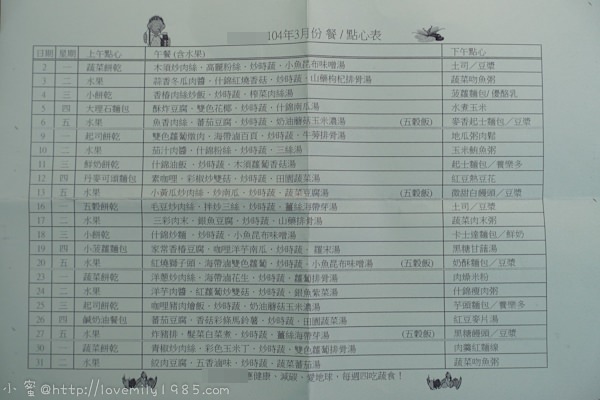 104年3月份 餐/點心表
日期 星期 上午點心 午餐(含水果) 下午點心
2 一 蔬菜餅乾 木須炒肉絲、高麗粉絲、炒時蔬、小魚昆布味噌湯 土司/豆漿
3 二 水果 蒜香冬瓜肉醬、什錦紅燒香菇、炒時蔬、山藥枸杞排骨湯 蔬菜吻魚粥
4 三 小餅乾 香椿肉絲炒飯、炒時蔬、榨菜肉絲湯 菠蘿麵包/優酪乳
5 四 大理石麵包 酥炸豆腐、雙色花椰、炒時蔬、什錦南瓜湯 水煮玉米
6 五 水果 魚香肉絲、蕃茄豆腐、炒時蔬、奶油蘑菇玉米濃湯 (五穀飯) 麥香起士麵包/豆漿
9 一 起司餅乾 雙色蘿蔔燉肉、海帶滷百頁、炒時蔬、牛蒡排骨湯 地瓜粥肉鬆
10 二 水果 茄汁肉醬、什錦粉絲、炒時蔬、三絲湯 玉米鮪魚粥
11 三 鮮奶餅乾 什錦油飯、炒時蔬、木須蘿蔔香菇湯 起士麵包/養樂多
12 四 丹麥可頌麵包 素咖哩、彩椒炒雙菇、炒時蔬、田園蔬菜湯 紅豆熬豆花
13 五 水果 小黃瓜炒肉絲、炒南瓜、炒時蔬、蔬菜豆腐湯 (五穀飯) 微甜白饅頭/豆漿
16 一 五穀餅乾 毛豆炒肉絲、拌炒三絲、炒時蔬、薑絲海帶芽湯 土司/豆漿
17 二 水果 三彩肉末、銀魚豆腐、炒時蔬、山藥排骨湯 蔬菜肉末粥
18 三 小餅乾 什錦炒麵、炒時蔬、小魚昆布味噌湯 卡士達麵包/鮮奶
19 四 小菠蘿麵包 家常香椿豆腐、咖哩洋芋南瓜、炒時蔬、羅宋湯 黑糖甘藷湯
20 五 水果 紅燒獅子頭、海帶滷雙色蘿蔔、炒時蔬、小魚昆布味噌湯 (五穀飯) 奶酥麵包/豆漿
23 一 蔬菜餅乾 洋蔥炒肉絲、海帶滷花生、炒時蔬、蘿蔔排骨湯 肉燥米粉
24 二 水果 洋芋肉醬、紅蘿蔔炒雙菇、炒時蔬、銀魚紫菜湯 什錦瘦肉粥
25 三 起司餅乾 咖哩豬肉燴飯、炒時蔬、奶油蘑菇玉米濃湯 芋頭麵包/養樂多
26 四 鹹奶油餐包 蕃茄豆腐、香菇彩條馬鈴薯、炒時蔬、田園蔬菜湯 紅豆麥片湯
27 五 水果 炸豬排、髮菜白菜煮、炒時蔬、薑絲海帶芽湯 (五穀飯) 黑糖饅頭/豆漿
30 一 蔬菜餅乾 青椒炒肉絲、彩色玉米丁、炒時蔬、雙色蘿蔔排骨湯 肉羹紅麵線
31 二 水果 絞肉豆腐、五香滷味、炒時蔬、蔬菜蕃茄湯 蔬菜吻魚粥
健康、減碳、愛地球，每週四吃蔬食！
小蜜@http://lovemily1985.com/